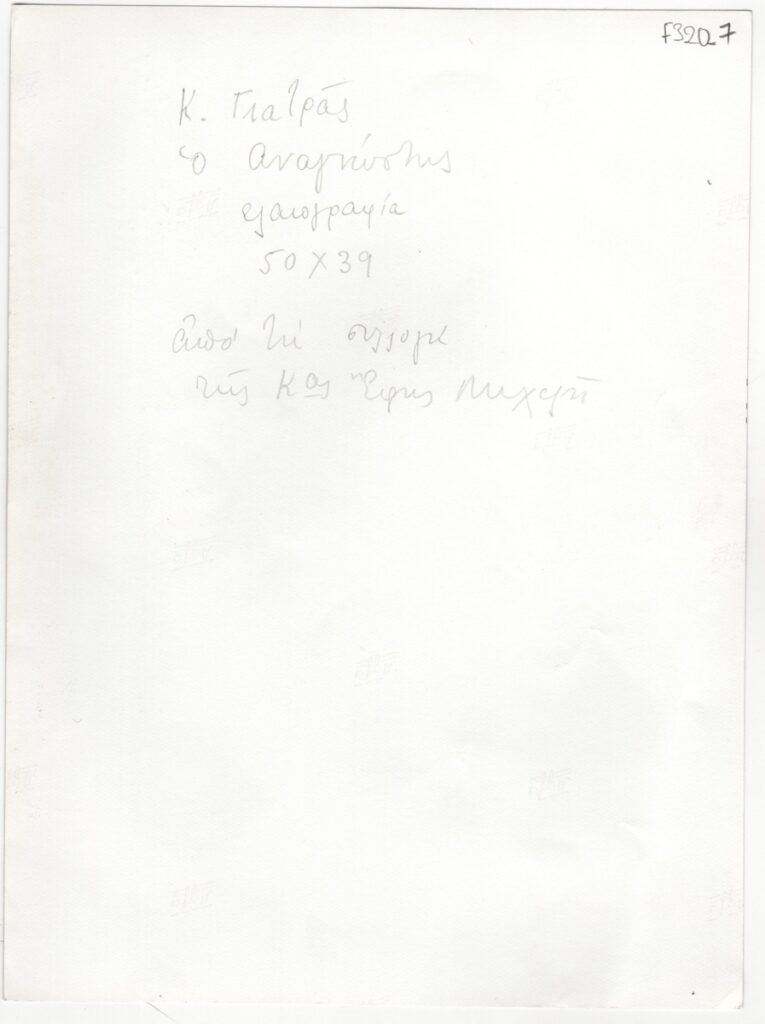 F3207
Κ. Γιατράς
Ὁ Αναγνώστης
ελαιογραφία
50 Χ 39
ἀπό τή συλλογή
τῆς Κας Ἔφης Μιχελή